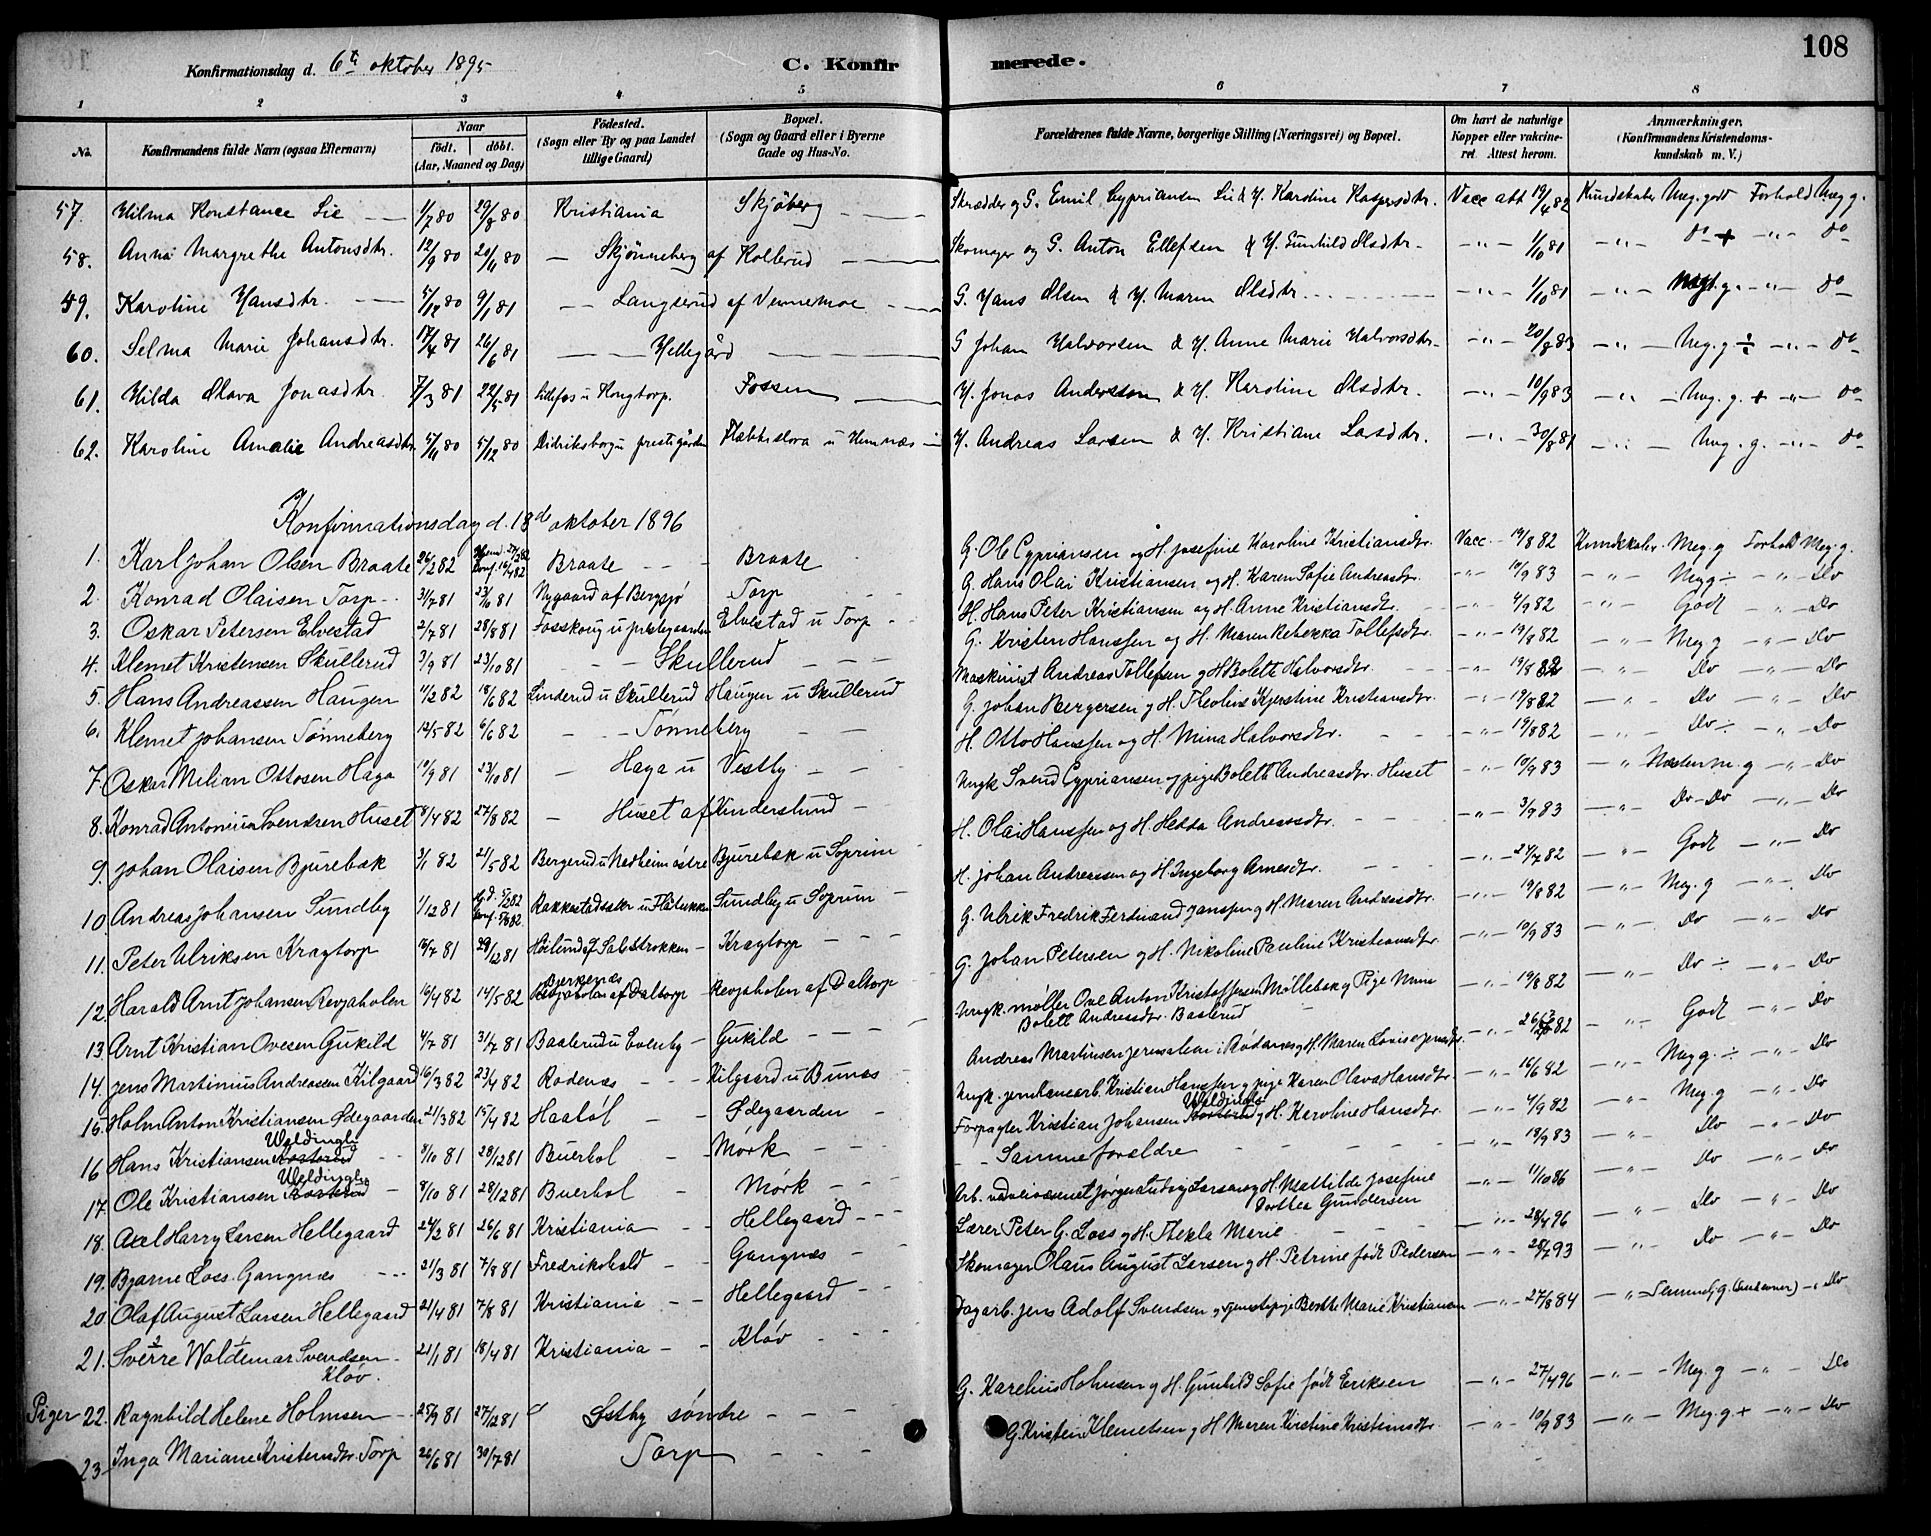 108
Konfirmationsdag d. 6te oktober 1895
C. Konfirmerede.
1 2 3 4 5 6 7 8
No. Konfirmandens fulde Navn (ogsaa Efternavn) Naar født. døbt. (Aar, Maaned og Dag) Fødested. (Sogn eller By og paa Landet tillige Gaard) Bopæl. (Sogn og Gaard eller i Byerne Gade og Hus-No. Forældrenes fulde Navne, borgerlige Stilling (Næringsvei) og Bopæl. Om havt de naturlige Kopper eller vakcineret. Attest herom. Anmærkninger. (Konfirmandens Kristendomskundskab m. V.)
57. Hilma Konstance Lie 1/7 80 29/8 80 Kristiania Skjøberg Skrædder og G. Emil Cypriansen Lie & H. Karoline Kaspersdtr. Vacc att 19/4 82 Kundskaber Meg. godt Forhold Meg g.
58. Anna Margrethe Antonsdtr. 12/9 80 20/11 80 — Skjønneberg af Kollerud Skomager og G. Anton Ellefsen & H. Gunhild Olsdtr. —"— 1/10 81 —"— do + —"— do
59. Karoline Hansdtr. 5/12 80 9/1 81 — Langserud af Vennemoe G. Hans Olsen & H. Maren Olsdtr. —"— 1/10 81 —"— Megt. g. —"— do
60. Selma Marie Johansdtr. 17/4 81 26/6 81 — Hellegård G Johan Halvorsen & H. Anne Marie Halvorsdtr. —"— 20/8 83 —"— Meg. g ÷ —"— do
61. Hilda Olava Jonasdtr. 7/3 81 22/5 81 Lillefos u Kongtorp. Fossen H. Jonas Anderssen & H. Karoline Olsdtr. —"— 10/9 83 —"— Meg. g. + —"— do
62. Karoline Amalie Andreasdtr. 5/11 80 5/12 80 Didriksborg u prestgården Flæbbeslora u Hemnæs H. Andreas Larsen & H. Kristiane Larsdtr. —"— 30/8 81 —"— Meg. g. —"— do
Konfirmationsdag d. 18de oktober 1896
1. Karl Johan Olsen Braate 26/2 82 Hjemd. 27/3 82 Conf. 16/4 82 Braate Braate G. Ole Cypriansen og H. Josefine Karoline Kristiansdtr. Vacc. 19/8 82 Kundskaber. Meg. g Forhold Meg. g.
2. Konrad Olaisen Torp 31/7 81 23/10 81 Nygaard af Bergsjø Torp G. Hans Olai Kristiansen og H. Karen Sofie Andreasdtr. —"— 10/9 83 —"— Meg g ÷ —"— Do
3. Oskar Petersen Elvestad 2/7 81 28/8 81 Fosskoug u prestegaarden Elvestad u Torp H. Hans Peter Kristiansen og H. Anne Kristiansdtr. —"— 4/9 82 —"— Godt —"— Do
4. Klemet Kristensen Skullerud 3/9 81 23/10 81 — Skullerud G. Kristen Hanssen og H. Maren Rebekka Tollefsdtr. —"— 19/8 82 —"— Meg g —"— Do
5. Hans Andreassen Haugen 11/2 82 18/6 82 Linderud u Skullerud Haugen u Skullerud Maskinist Andreas Tollefsen og H Bolett Halvorsdtr. —"— 19/8 82 —"— Do —"— Do
6. Klemet Johansen Tønneberg 12/5 82 6/6 82 — Tønneberg G. Johan Bergersen g H. Theoline Kjerstine Kristiansdtr. —"— 19/8 82 —"— Do —"— Do
7. Oskar Milian Ottosen Haga 10/9 81 23/10 81 — Haga u Vestby H. Otto Hanssen og H. Mina Halvorsdtr. —"— 19/8 82 —"— Do ÷ —"— Do
8. Konrad Antonius Svendsen Huset 8/4 82 27/8 82 — Huset af Kinderslund Ungk Svend Cypriansen og pige Bolett Andreasdtr. Huset —"— 10/9 83 —"— Næsten m. g —"— Do
9. Johan Olaisen Bjurebæk 3/1 82 21/5 82 Bergerud u Nadheim østre Bjurebæk u Soprim H. Olai Hanssen og H. Hedda Andreasdtr. —"— 3/9 83 —"— Do—Do —"— Do
10 Andreas Johansen Sundby 1/12 81 Hjd. 5/2 82 Conf. 5/3 82 Rakkestadsæter u Flatukken Sundby u Soprim H. Johan Andreassen og H. Ingeborg Arnesdtr. —"— 24/7 82 —"— Godt —"— Do
11. Peter Ulriksen Kragtorp 18/7 81 29/12 81 Høilund af Salstrokken Kragtorp G. Ulrik Fredrik Ferdinand Janssen g H. Maren Andreasdtr. —"— 19/8 82 —"— Meg. g —"— Do
12. Harald Arnt Johansen Revjaholen 16/4 82 14/5 82 Bjerkenæs Revjaholen af Daltorp Revjaholen af Daltorp G. Johan Petersen og H. Nikoline Pauline Kristiansdtr. —"— 10/9 83 —"— Do —"— Do
13 Arnt Kristian Ovesen Gukild 4/7 81 31/7 81 Baslerud u Evenby Gukild Ungk. møller Ove Anton Kristoffersen Møllebæk g Pige Mina Bolett Andreasdtr. Baslerud —"— 19/8 82 —"— Do ÷ —"— Do
14. Jens Martinius Andreassen Kilgaard 16/3 82 23/4 82 Rødenæs Kilgaard u Bunæs Andreas Martinsen Jerusalem i Rødenæs g H. Maren Lovise Jensdtr. —"— 26/ 82 —"— Godt —"— Do
15. Holm Anton Kristiansen Ødegaarden 21/3 82 15/4 82 Haabøl Ødegaarden Ungk. jernbanearb. Kristian Hanssen g pige Karen Olava Hansdtr. —"— 16/6 82 —"— Meg g. ÷ —"— Do
16 Hans Kristiansen Weldingli 8/10 81 28/12 81 Buerhol Mørk Forpagter Kristian Johansen Weldingli g H. Karoline Hansdtr. —"— 4/9 82 —"— Meg. g —"— Do
17. Ole Kristiansen Weldingli 8/10 81 28/12 81 Buerhol Mørk Samme forældre —"— 18/9 83 —"— Do —"— Do
18. Axel Harry Larsen Hellegaard 24/2 81 26/6 81 Kristiania Hellegaard Arb. ved veivæsenet Jørgen Ludvig Larsen og H. Mathilde Josefine Dorthea Gundersen —"— 11/10 86 —"— Do —"— Do
19. Bjarne Loss. Gangnæs 21/3 81 7/8 81 Fredrikshald Gangnæs Lærer Peter G. Loss g H. Thekla Marie —"— 28/4 96 —"— Do —"— Do
20 Olaf August Larsen Hellegaard 21/4 81 7/8 81 Kristiania Hellegaard Skomager Olaus August Larsen g H. Petrine født Pedersen —"— 28/7 93 —"— Do —"— Do
21. Sverre Waldemar Svendsen Kløv. 21/1 81 18/4 81 Kristiania Kløv Fagarb. Jens Adolf Svendsen g tjenestepige Berthe Marie Kristiansen —"— 27/8 84 —"— Do
Piger 22. Ragnhild Helene Holmsen 25/9 81 27/12 81 Østby søndre G. Karelius Holmsen g H. Gunhild Sofie født Eriksen —"— 27/4 96 —"— Meg. g —"— Do
23 Inga Mariane Kristensdtr. Torp 26/6 81 30/7 81 Torp G. Kristen Klemetsen g H Maren Kirstine Kristiansdtr. —"— 10/9 83 —"— Meg. g + —"— Do